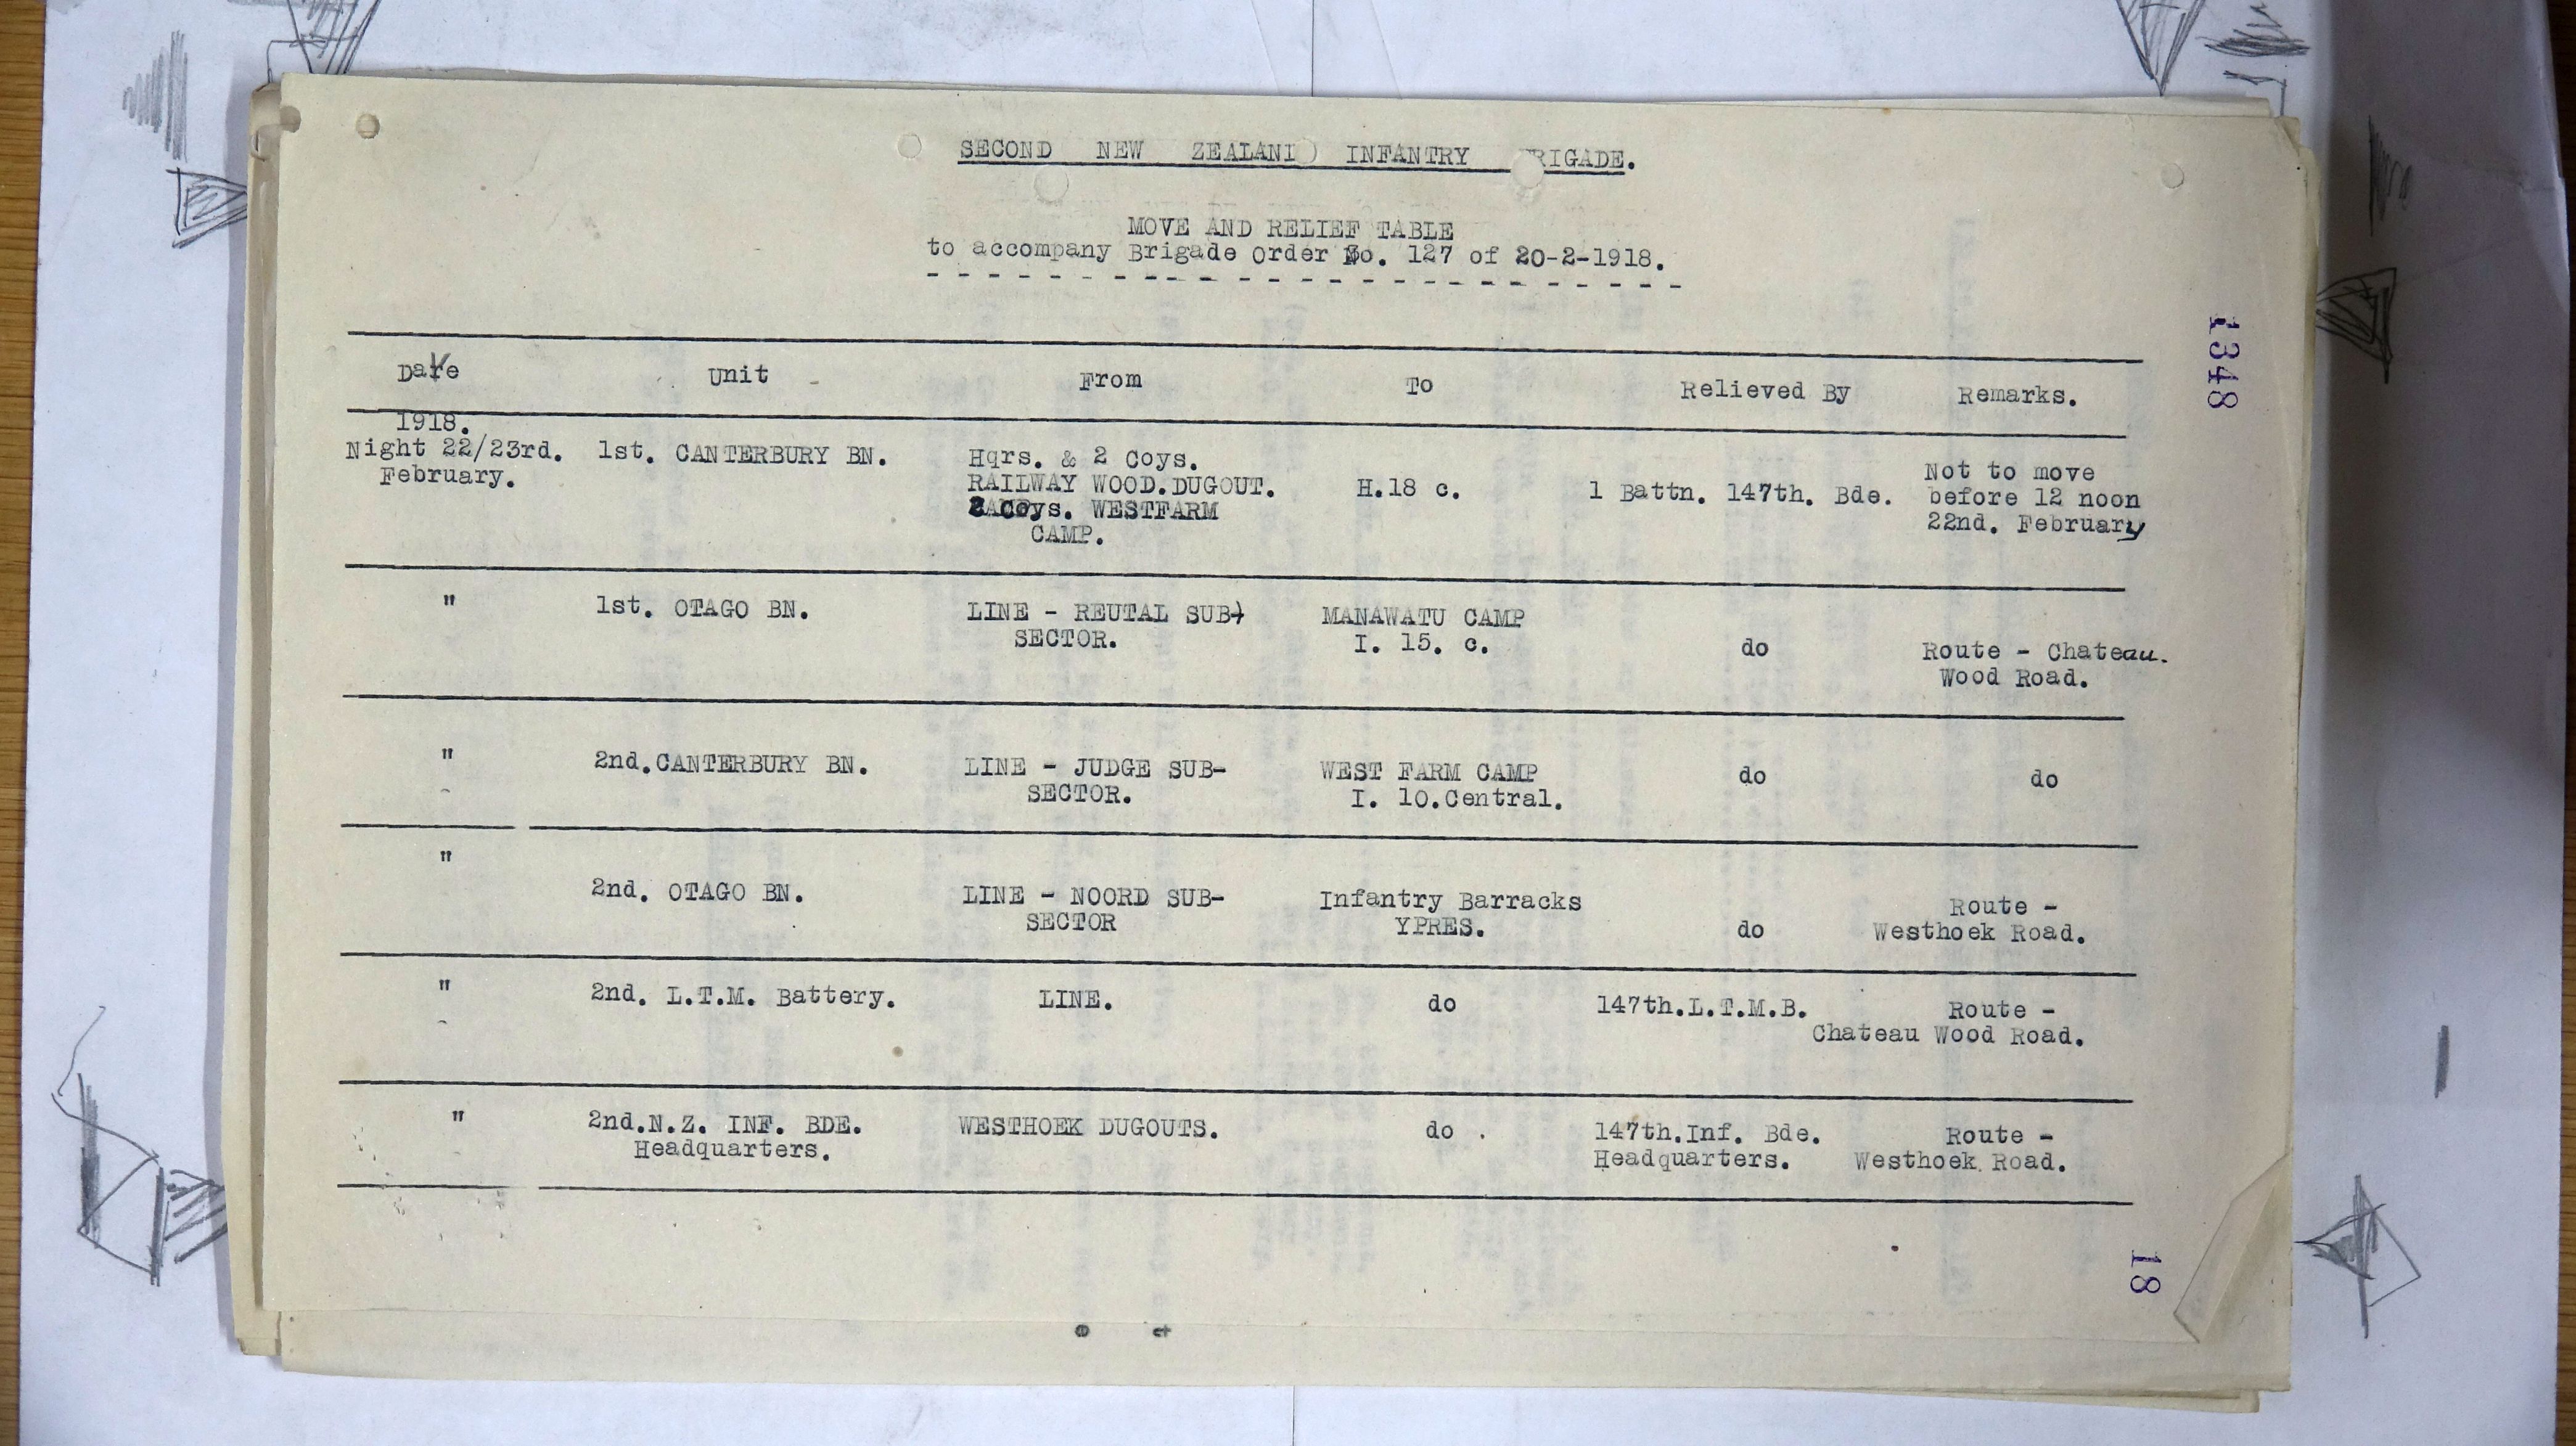 SECOND NEW ZEALAND INFANTRY BRIGADE.
MOVE AND RELIEF TABLE
to accompany Brigade Order No. 127 of 20-2-1918.
Date Unit From To Relieved By Remarks.
1918.
Night 22/23rd. 1st. CANTERBURY BN. Hqrs. & 2 Coys. Not to move
February. RAILWAY WOOD.DUGOUT. H.18 c. 1 Battn. 147th. Bde. before 12 noon
2 Coys. WESTFARM 22nd. February
CAMP.
" 1st. OTAGO BN. LINE - REUTAL SUB- MANAWATU CAMP
SECTOR. I. 15. c. do Route - Chateau.
Wood Road.
" 2nd.CANTERBURY BN. LINE - JUDGE SUB- WEST FARM CAMP do do
SECTOR. I. 10.Central.
" 2nd. OTAGO BN. LINE - NOORD SUB- Infantry Barracks Route -
SECTOR YPRES. do Westhoek Road.
" 2nd. L.T.M. Battery. LINE. do 147th.L.T.M.B. Route -
Chateau Wood Road.
" 2nd.N.Z. INF. BDE. WESTHOEK DUGOUTS. do . 147th.Inf. Bde. Route -
Headquarters. Headquarters. Westhoek Road.
1348
18
e t